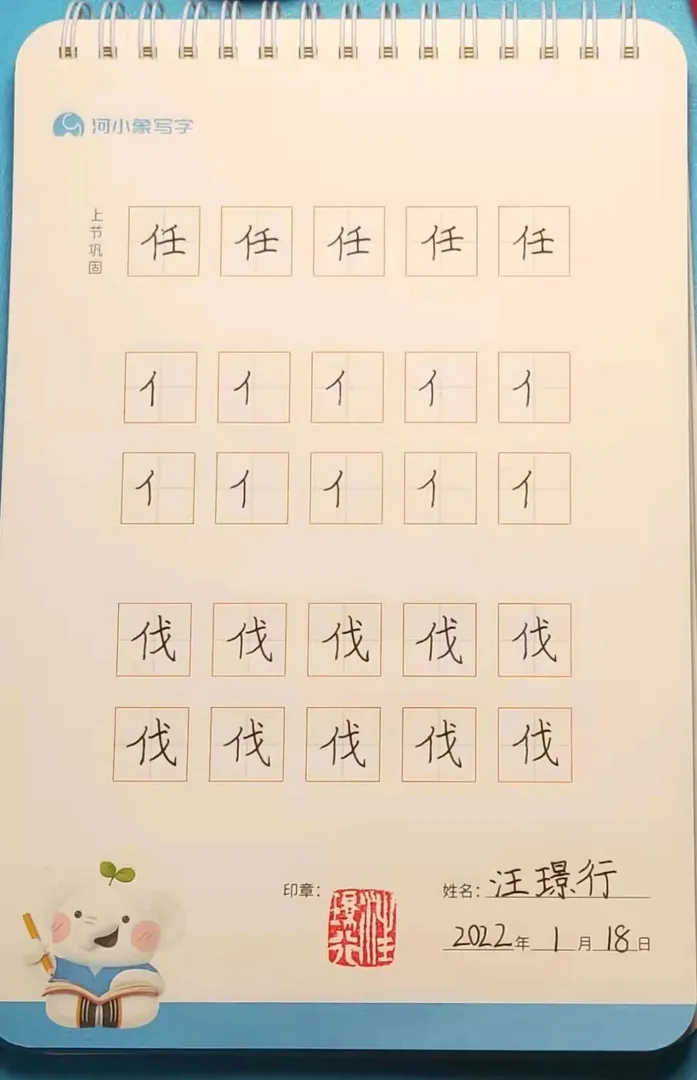 河小象写字
上节巩固
任 任 任 任 任
亻 亻 亻 亻 亻
亻 亻 亻 亻 亻
伐 伐 伐 伐 伐
伐 伐 伐 伐 伐
印章： 汪璟行 姓名：汪璟行
2022年1月18日